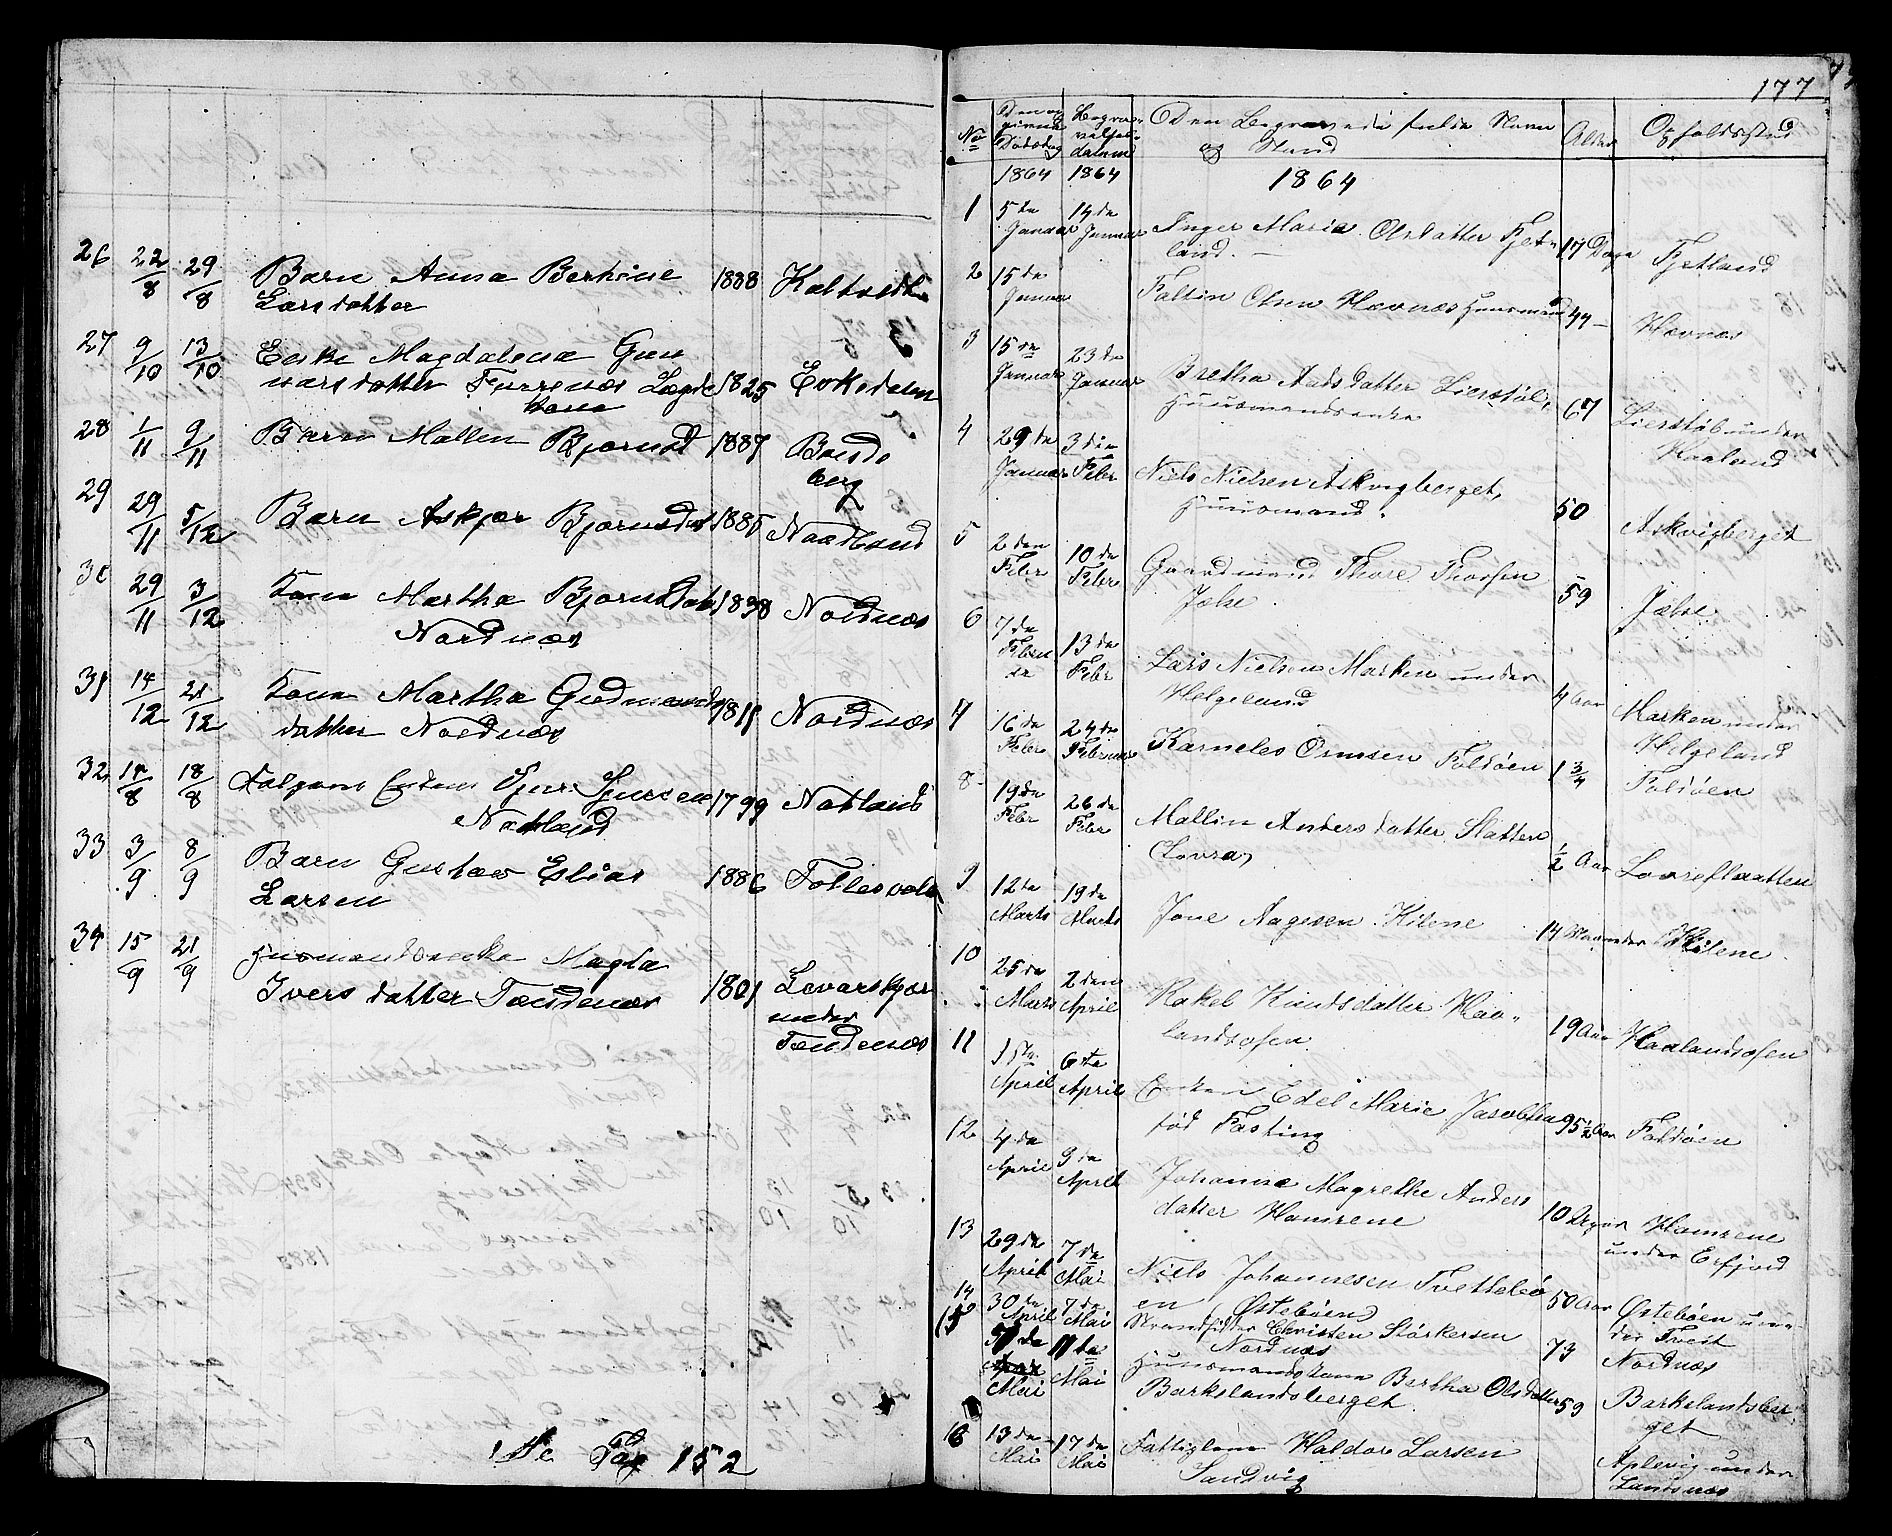 26 22/8 29/8 Barn Anna Berthine 1888
Larsdatter
27 9/10 13/10 Enke Magdalena Gun
narsdatter Furrenæs Lægds 1825 Erksdalen
kone
28 1/11 9/11 Barn Mallen Bjørnsd 1887 Borde
berg
29 29/11 5/12 Barn Askjær Bjørnsdat 1885 Naadland
30 29/11 3/12 Kone Martha Bjørnsdat 1838 Nordnæs
Nordnæs
31 14/12 21/12 Kone Martha Gudmunds 1818 Nordnæs
datter Nordnæs
32 14/8 18/8 1799 Natland
Natland
33 3/9 8/9 Barn Gustav Elias 1886
Larsen
34 15/9 21/9 Husmandsenke Magla
Ivers datter Tændenæs 1801 Levarskjær
under
Tændenæs
Se Pag 152
177
No Den op givende Dødsdag Begravelses datum Den Begravedes fulde Navn Alder Opholdssted
og Stand
1864 1864 1864
1 5te Januar 14de Januar Inger Maria Olsdatter Fjet-
land. 17 Dage Fjetland
2 15de Januar Faltin Olsen Hævnæs Huusmand 44 Hævnæs
3 15de Januar 23de Januar Bretha Aadsdatter Lierstøl,
Huusmandsenke 67 Lierstøl under
Haaland
4 29de Januar 3die Febr Niels Nielsen Askvigberget,
Huusmand. 50 Askvigberget
5 2den Febr 10de Febr Gaardmand Thore Thorsen
Jelse 59 Jelse
6 7de 13de Febr Lars Nielsen Marken under
Helgeland 4 Aar Marken under
Helgeland
7 16de Febr 24de Februar Karneles Ormsen Foldøen 1 3/4 Foldøen
8 19de Febr 26de Febr Mallin Andersdatter Slatten
Lovra 1/2 Aar Lovreslaatten
9 12te Marts 19de Marts Jone Aagesen Hilene 14 Maaneder Hilene
10 25de Marts 2den April Rakel Knudsdatter Haa-
landsosen 19 Aar Haalandsosen
11 1ste April 6te April Enken Edel Marie Jacobsen
fød Fasting 95 1/2 Aar Foldøen
12 4de April 9de April Johanna Magrethe Anders
datter Hamrene 10 Hamrene
under Erfjord
13 29de April 7de Mai Niels Johannesen Tvettebø
en Østebøen 50 Aar Østebøen un-
der Tveit
14 30te April 7de Mai Strandsidder Christen Størkersen
Nordnæs 73 Nordnæs
15 Mai 11te Mai Huusmandskone Bertha Olsdatter
Barkelandsberget 59 Barkelandsber-
get
16 13de Mai 17de Mai Fattiglem Haldor Larsen
Sandvig Aplevig under
Landsnæs